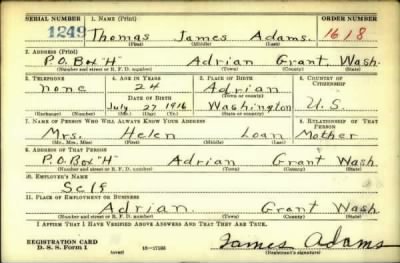 SERIAL NUMBER 1. NAME (Print) ORDER NUMBER
1249 Thomas James Adams. 1618
(First) (Middle) (Last)
2. ADDRESS (Print)
P.O. Box "H" Adrian Grant, Wash.
(Number and street or R. F. D. number) (Town) (County) (State)
3. TELEPHONE 4. AGE IN YEARS 5. PLACE OF BIRTH 6. COUNTRY OF CITIZENSHIP
none 24 Adrian
DATE OF BIRTH (Town or county)
July 27 1916 Washington U.S.
(Exchange) (Number) (Mo.) (Day) (Yr.) (State or country)
7. NAME OF PERSON WHO WILL ALWAYS KNOW YOUR ADDRESS 8. RELATIONSHIP OF THAT PERSON
Mrs. Helen Loan Mother
(Mr., Mrs., Miss) (First) (Middle) (Last)
9. ADDRESS OF THAT PERSON
P.O. Box "H" Adrian Grant Wash.
(Number and street or R. F. D. number) (Town) (County) (State)
10. EMPLOYER'S NAME
Self
11. PLACE OF EMPLOYMENT OR BUSINESS
Adrian. Grant Wash
(Number and street or R. F. D. number) (Town) (County) (State)
I AFFIRM THAT I HAVE VERIFIED ABOVE ANSWERS AND THAT THEY ARE TRUE.
REGISTRATION CARD
D. S. S. Form 1 (over) James Adams
(Registrant's signature)